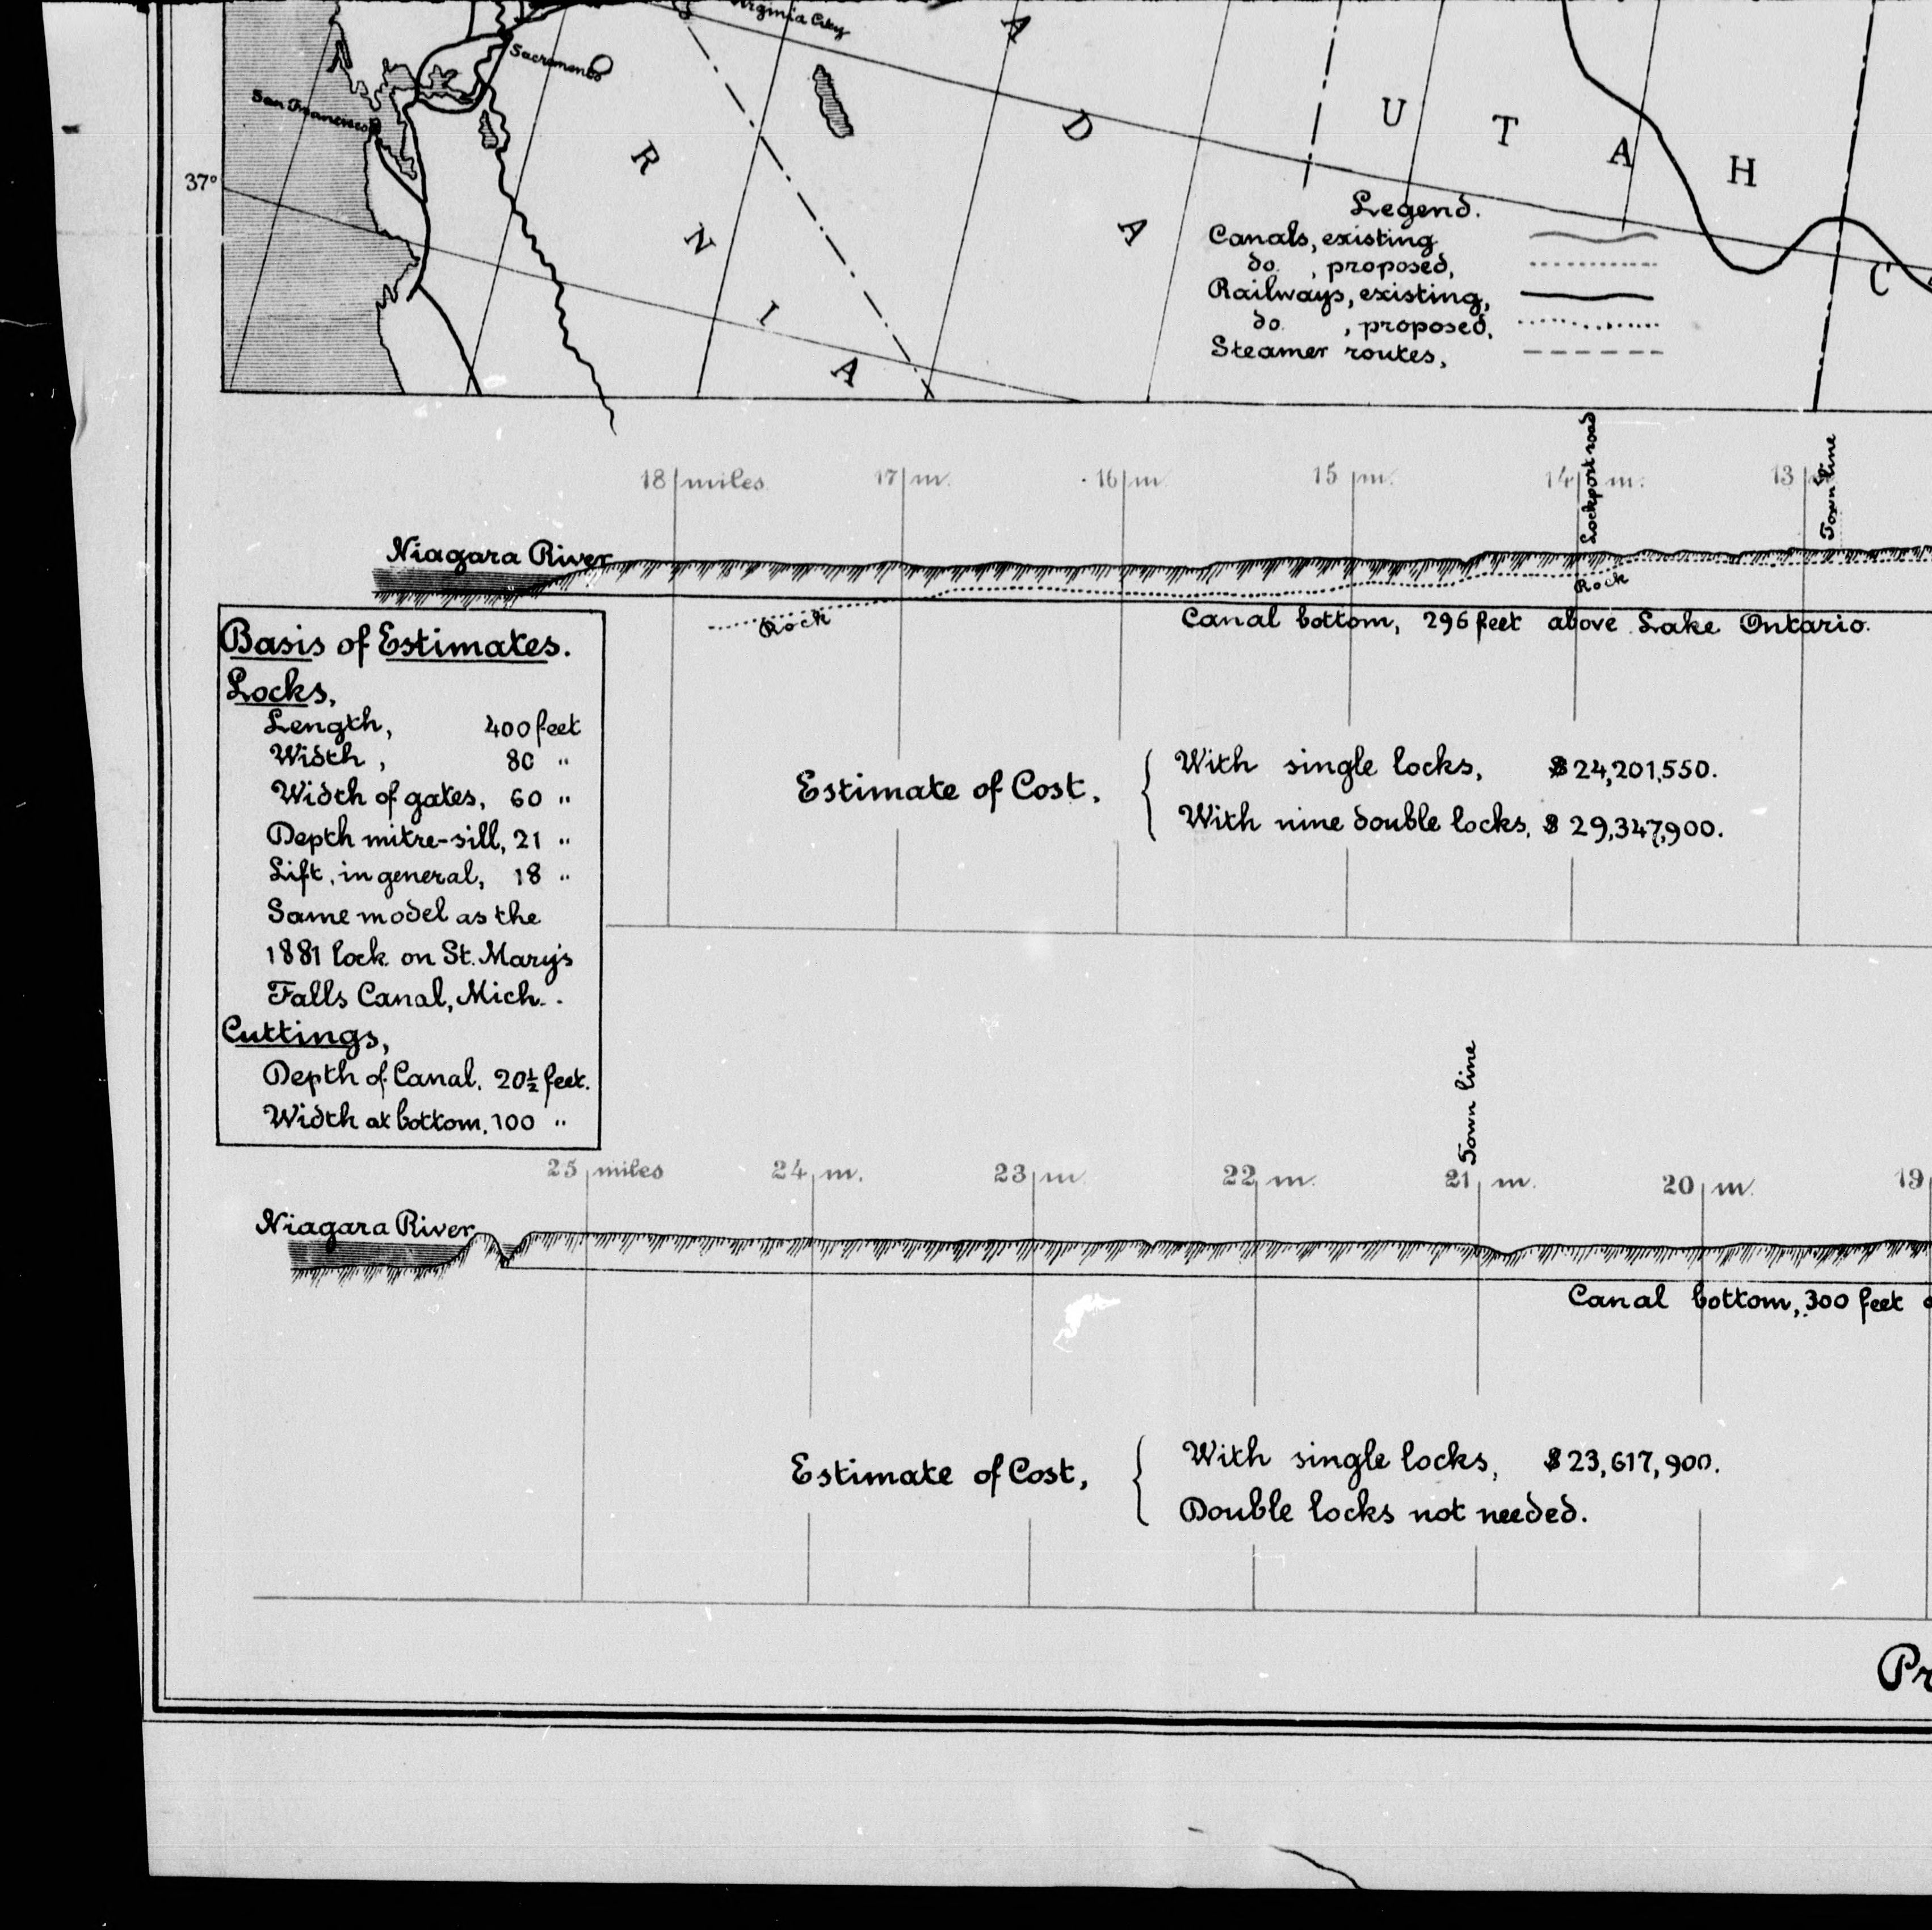 Virginia City
Sacramento
San Francisco
37°
R N I A
A D A
U T A H
C
Legend.
Canals, existing
do. , proposed,
Railways, existing,
do. , proposed,
Steamer routes,
18 miles.
17 m.
16 m
15 m.
14 m.
13
Lockport road
Town line
Niagara River
Rock
Rock
Canal bottom, 296 feet above Lake Ontario.
Basis of Estimates.
Locks,
Length, 400 feet
Width, 80 "
Width of gates, 60 "
Depth mitre-sill, 21 "
Lift, in general, 18 "
Same model as the
1881 lock on St. Mary's
Falls Canal, Mich.
Cuttings,
Depth of Canal, 20½ feet.
Width at bottom, 100 "
Estimate of Cost,
With single locks, $24,201,550.
With nine double locks, $29,347,900.
Town line
25 miles
24 m.
23 m.
22 m.
21 m.
20 m.
19
Niagara River
Canal bottom, 300 feet
Estimate of Cost,
With single locks, $23,617,900.
Double locks not needed.
Pr